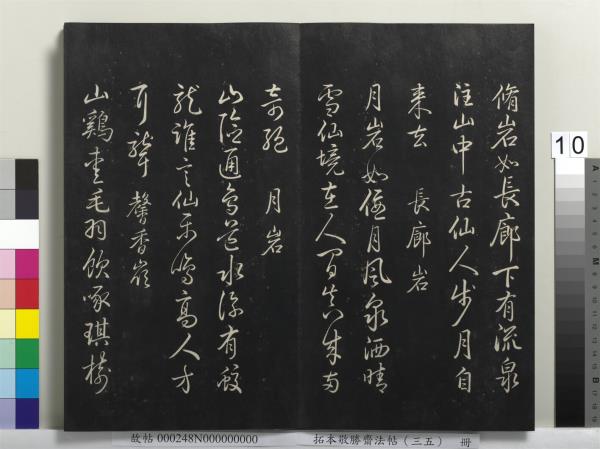 脩岩如長廊下有流泉
注山中古仙人步月自
来去 長廊岩
月岩如偃月風泉洒晴
雪仙境在人間真成兩
奇絕 月岩
山險通鳥道水深有蛟
龍誰言仙樂鳴高人方
耳聾 馨香嶺
山鷄愛毛羽飲啄琪樹
10
故帖 000248N000000000 拓本敬勝齋法帖(三五) 冊